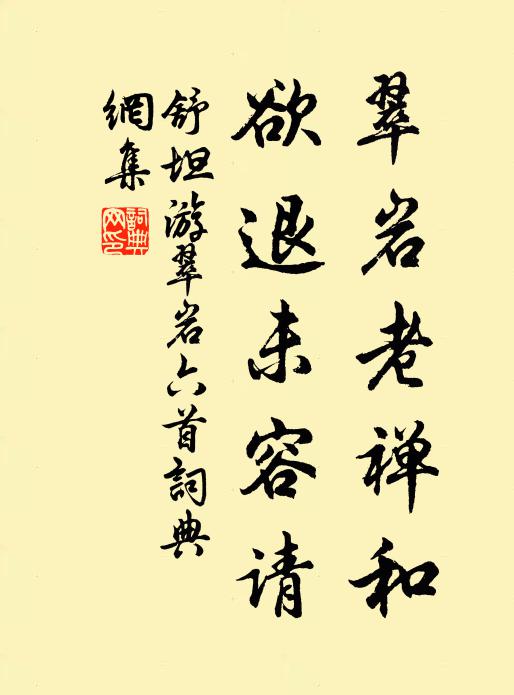 翠岩老禅和
欲退未容请
舒坦游翠岩六首詞典
網集
詞典網印